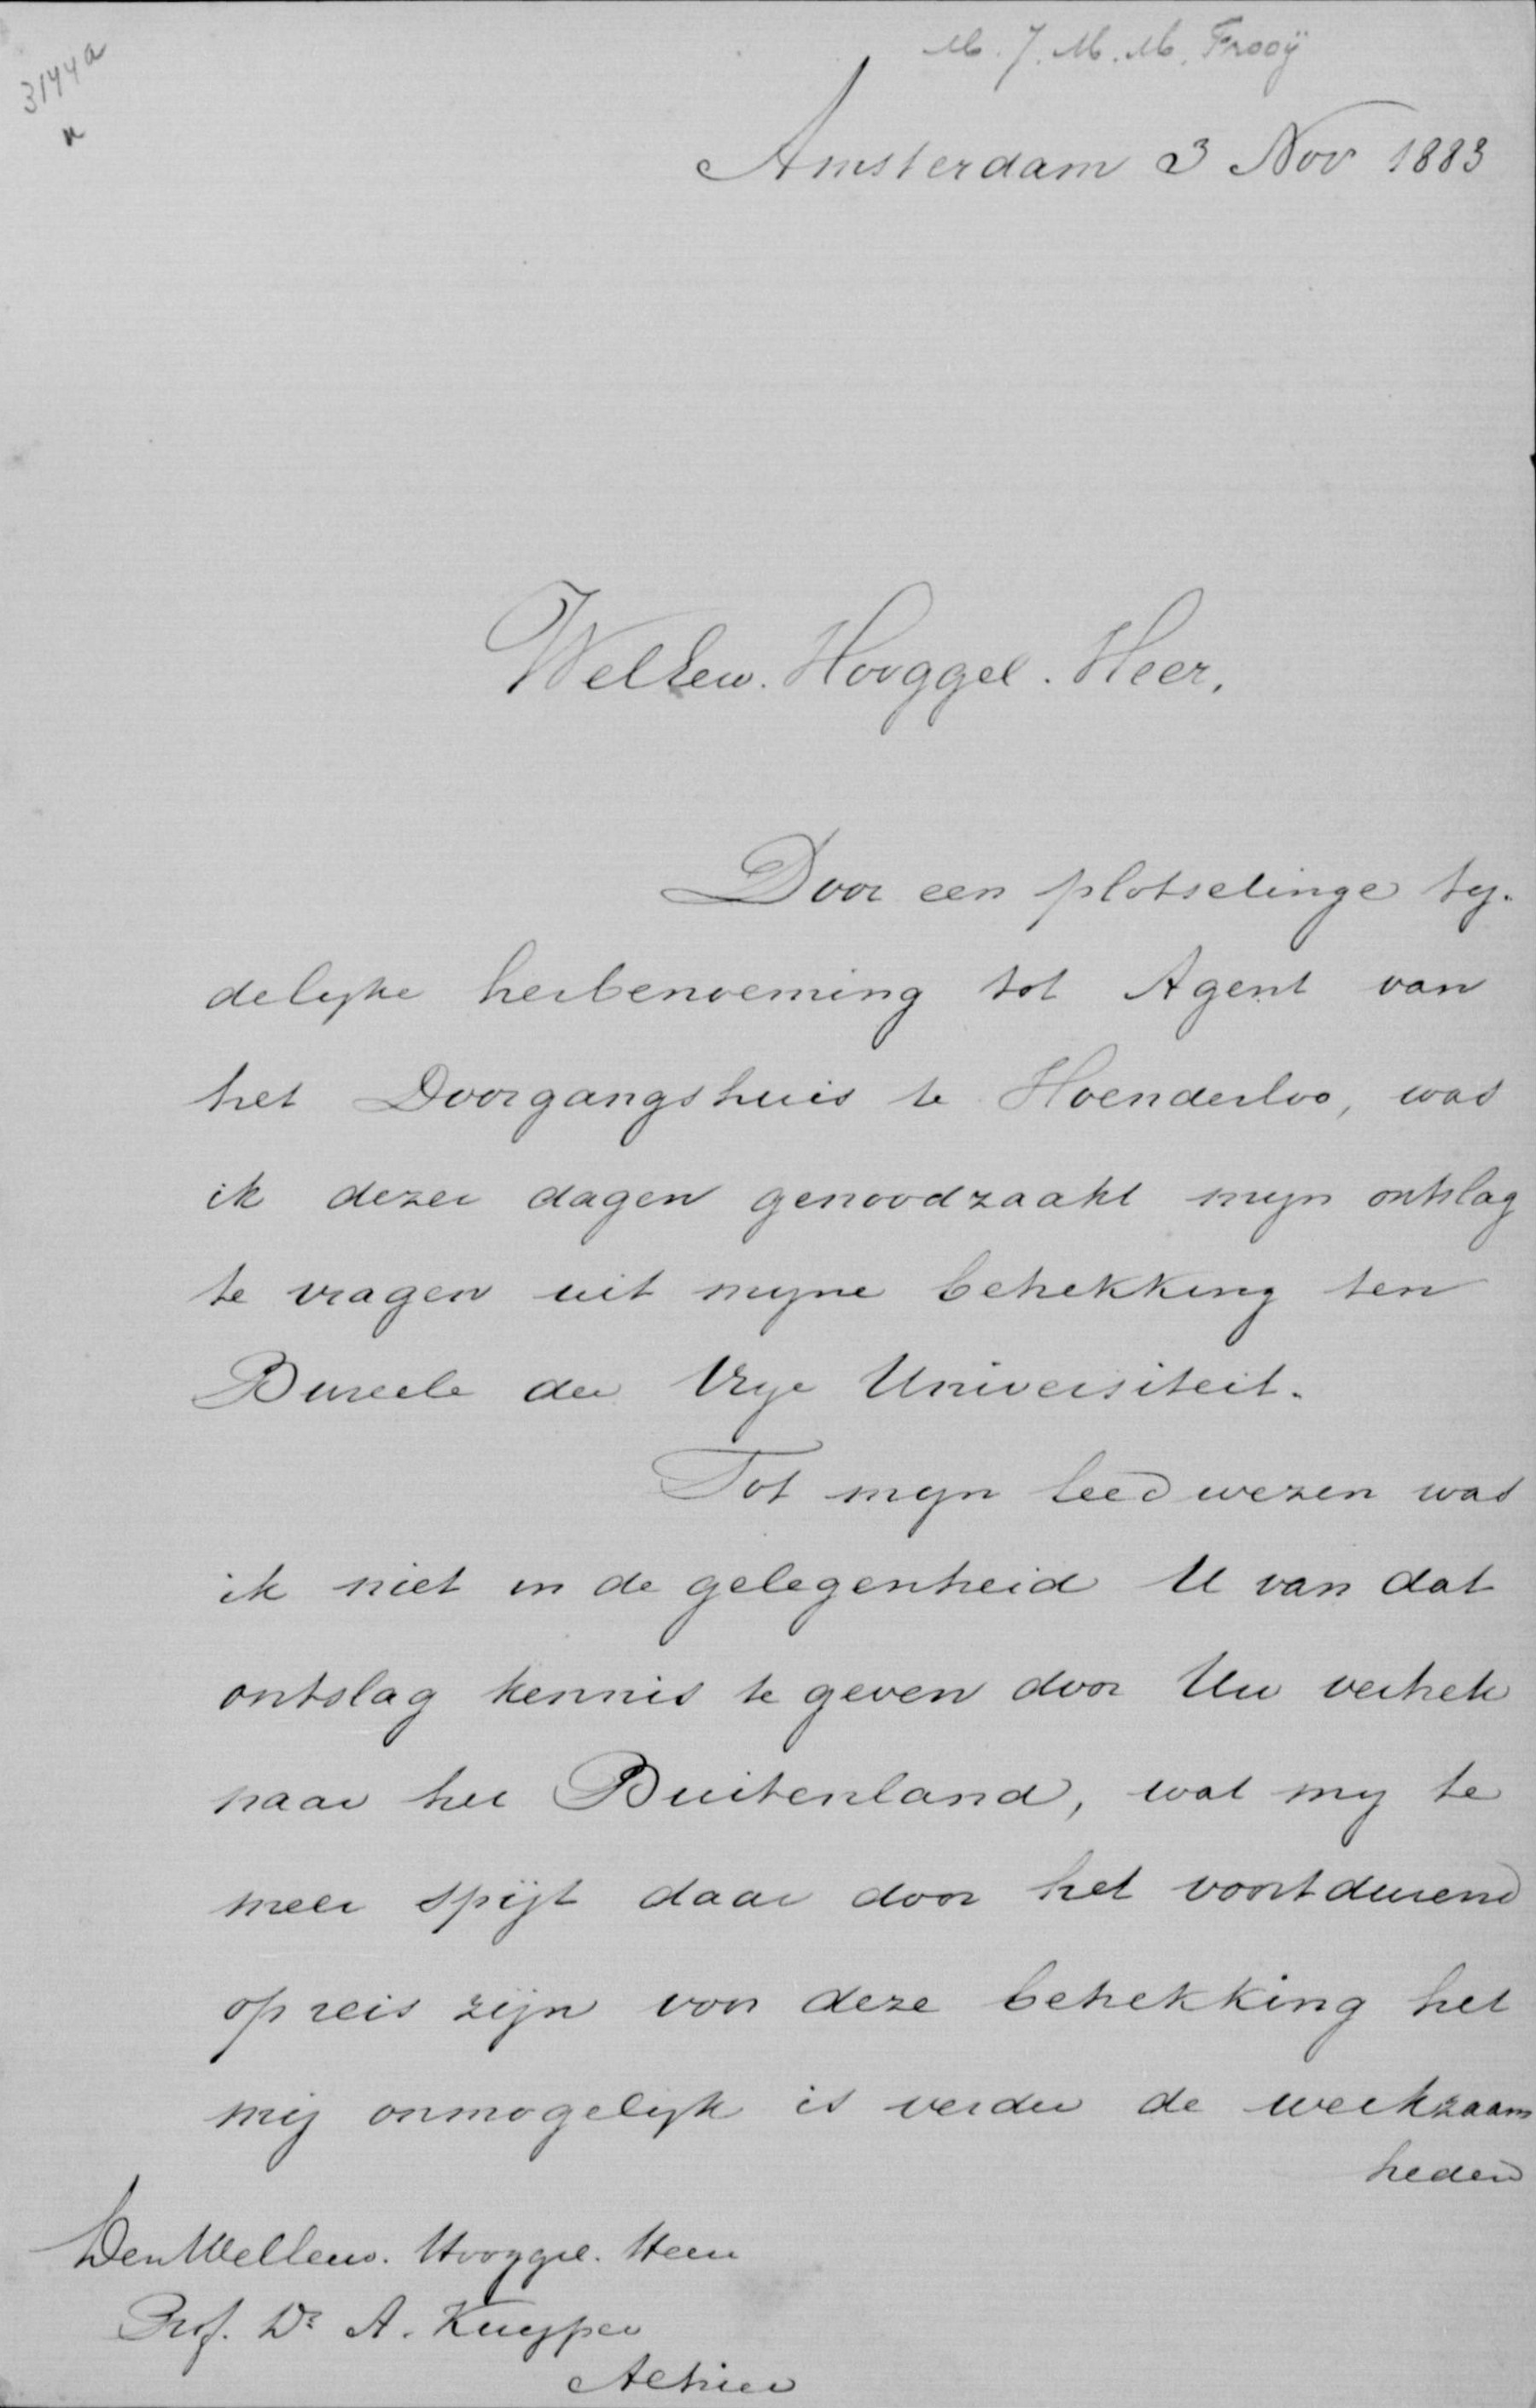 3144a
M. J. M. M. Frooÿ
Amsterdam 3 Nov 1883
WelEew. Hooggel. Heer,
Door een plotselinge ty-
delyke herbenoeming tot Agent van
het Doorgangshuis te Hoenderloo, was
ik dezer dagen genoodzaakt myn ontslag
te vragen uit myne betrekking ten
Bureele der Vrye Universiteit.
Tot myn leedwezen was
ik niet in de gelegenheid U van dat
ontslag kennis te geven door Uw vertrek
naar het Buitenland, wat my te
meer spijt daar door het voortdurend
op reis zijn voor deze betrekking het
mij onmogelyk is verder de werkzaam
heden
Den WelEew. Hooggel. Heer
Prof. Dr A. Kuyper
Alhier